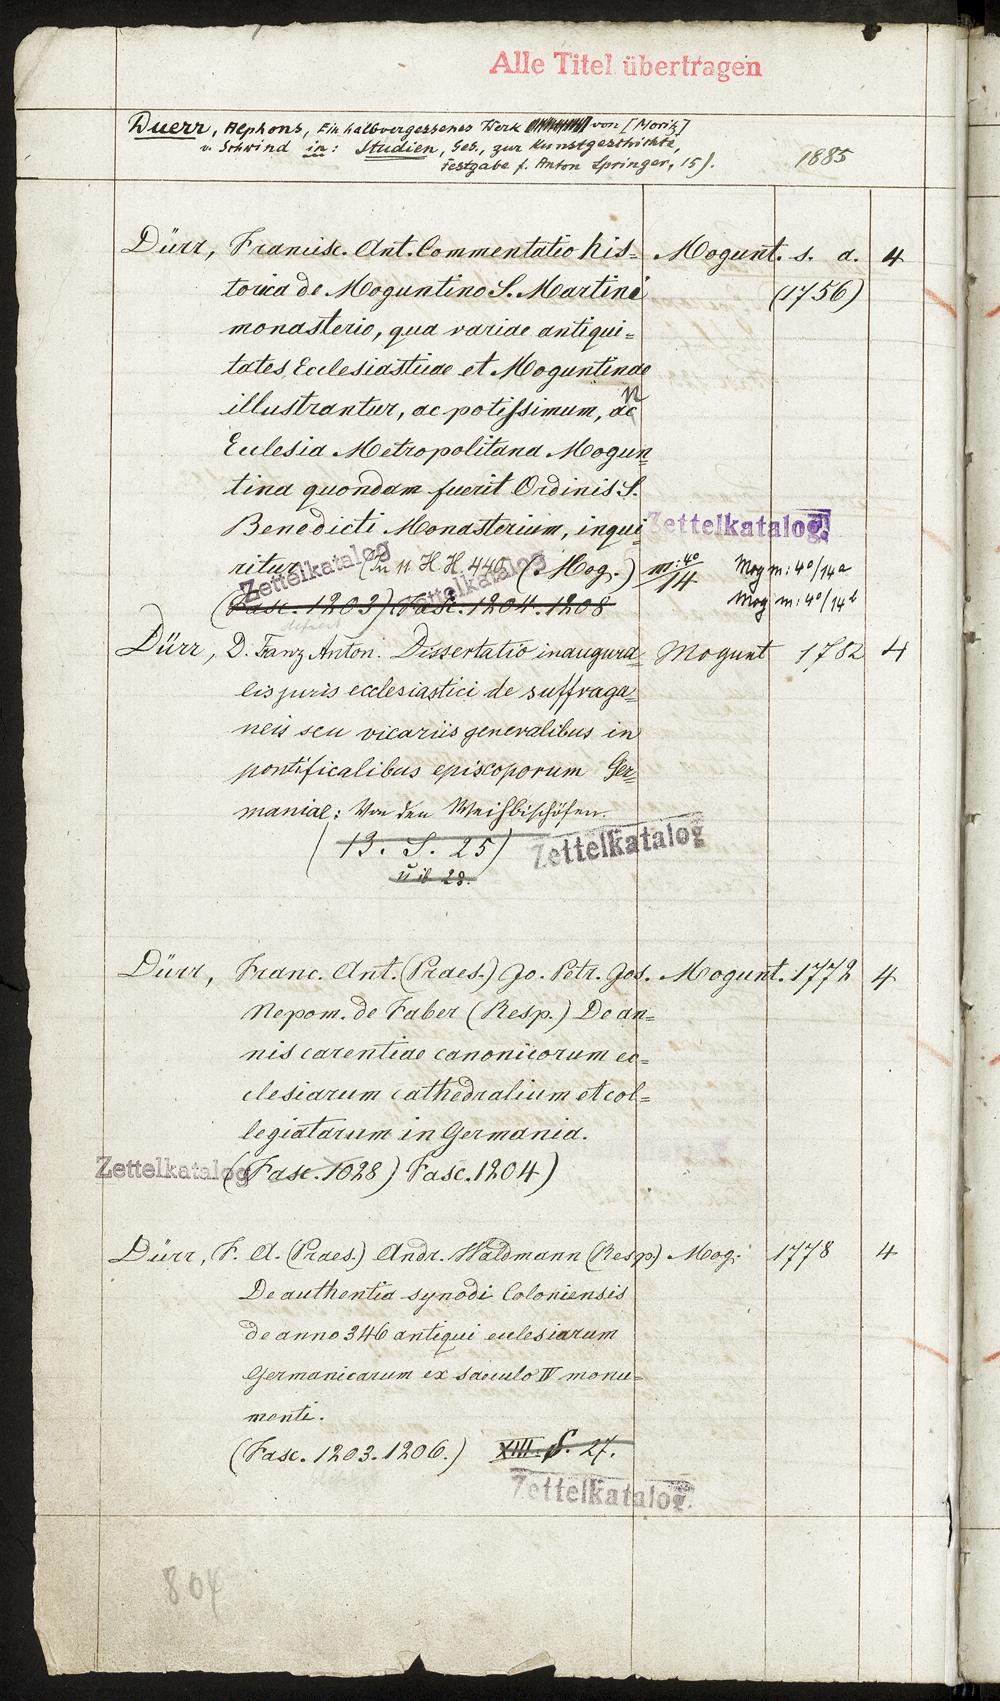 Alle Titel übertragen
Duerr, Alphons, Ein halbvergessenes Werk von [Moritz]
v. Schwind in: Studien, Ges., zur Kunstgeschichte,
Festgabe f. Anton Springer, 15). 1885
Dürr, Francisc. Ant. Commentatio his= Mogunt. s. a. 4
torica de Moguntino S. Martini (1756)
monasterio, qua variae antiqui=
tates Ecclesiasticae et Moguntinae
illustrantur, ac potissimum, an
Ecclesia Metropolitana Mogun=
tina quondam fuerit Ordinis S.
Benedicti Monasterium, inqui Zettelkatalog.
ritur. (In 11 H H. 440 (: Mog.) m: 4°/14 Mog m: 4°/14a
Zettelkatalog Zettelkatalog
(Fasc. 1203) Fasc. 1204. 1208 Mog m: 4°/14b
defect
Dürr, D. Franz Anton. Dissertatio inaugura= Mogunt 1782 4
lis juris ecclesiastici de suffraga=
neis seu vicariis generalibus in
pontificalibus episcoporum Ger=
maniae: Von den Weihbischöfen.
(13. S. 25) Zettelkatalog
u ib 28.
Dürr, Franc. Ant. (Praes.) Jo. Petr. Jos. Mogunt. 1772 4
Nepom. de Faber (Resp.) De an=
nis carentiae canonicorum ec=
clesiarum cathedralium et col=
legiatarum in Germania.
Zettelkatalog (Fasc. 1028) Fasc. 1204)
Dürr, F. A. (Praes.) Andr. Waldmann (Resp.) Mog: 1778 4
De authentia synodi Coloniensis
de anno 346 antiqui ecclesiarum
Germanicarum ex saeculo IV monu=
menti.
(Fasc. 1203. 1206.) XIII. S. 27.
Zettelkatalog.
804